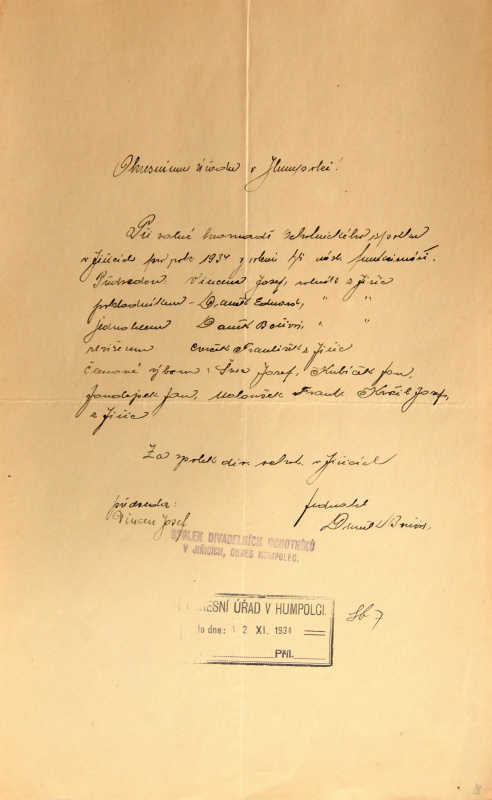 Okresnímu úřadu v Humpolci!
Při valné hromadě ochotnického spolku
v Jiřicích pro rok 1934 zvoleni tyto násl. funkcionáři.
Předsedou Vincenc Josef, rolník z Jiřic
pokladníkem - Daněk Eduard, " "
jednatelem Daněk Bořivoj, " "
revisorem Cvrček František z Jiřic
Členové výboru: Josef, Kubíček Jan,
Jan, Matoušek Frant. Josef,
z Jiřic
Za spolek div. ochot. v Jiřicích
předseda: jednatel
Vincenc Josef Daněk Bořivoj.
SPOLEK DIVADELNÍCH OCHOTNÍKŮ
V JIŘICÍCH, OKRES HUMPOLEC.
RESNÍ ÚŘAD V HUMPOLCI.
lo dne: 12 XI. 1934
PŘÍL.